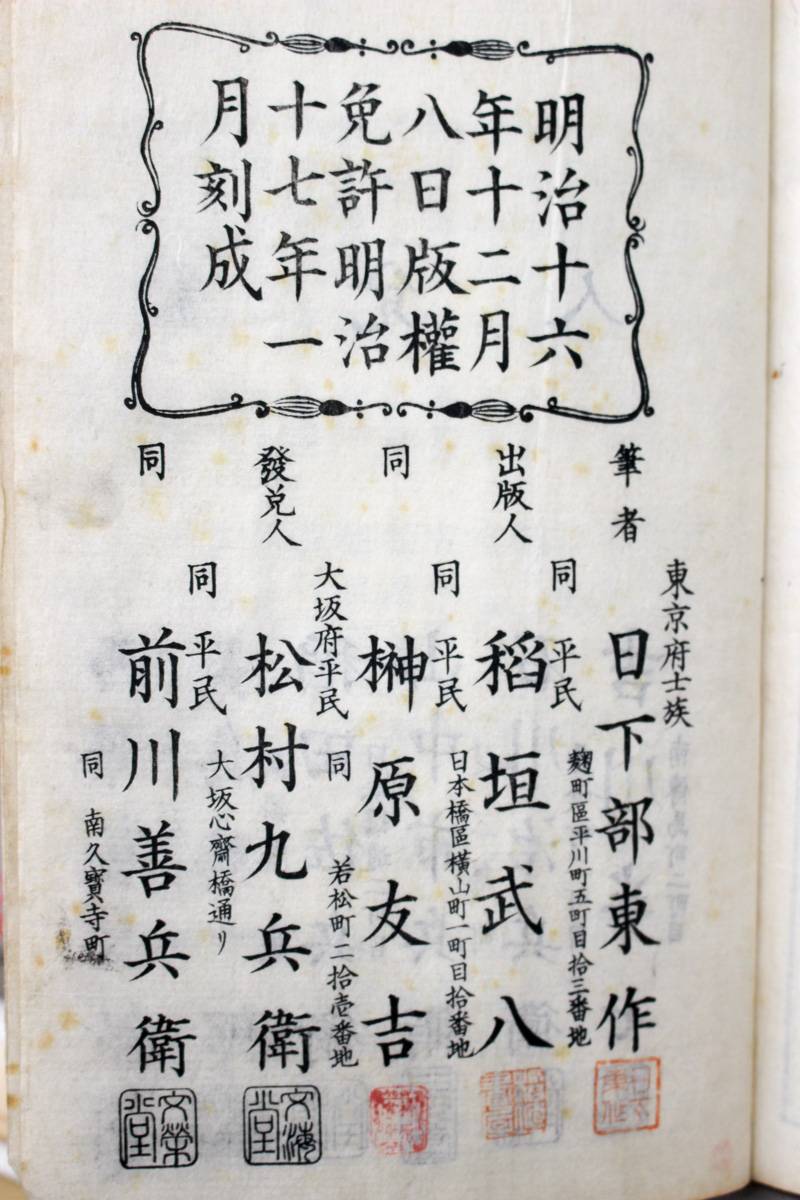 明治十六
年十二月
八日版權
免許明治
十七年一
月刻成
筆者
東京府士族
日下部東作
麹町區平川町五町目拾三番地
出版人
同 平民
稻垣武八
日本橋區橫山町一町目拾番地
同
同 平民
榊原友吉
同 若松町二拾壱番地
發兌人
大坂府平民
松村九兵衛
大坂心齋橋通り
同
同 平民
前川善兵衛
同 南久寶寺町
文海堂
文榮堂